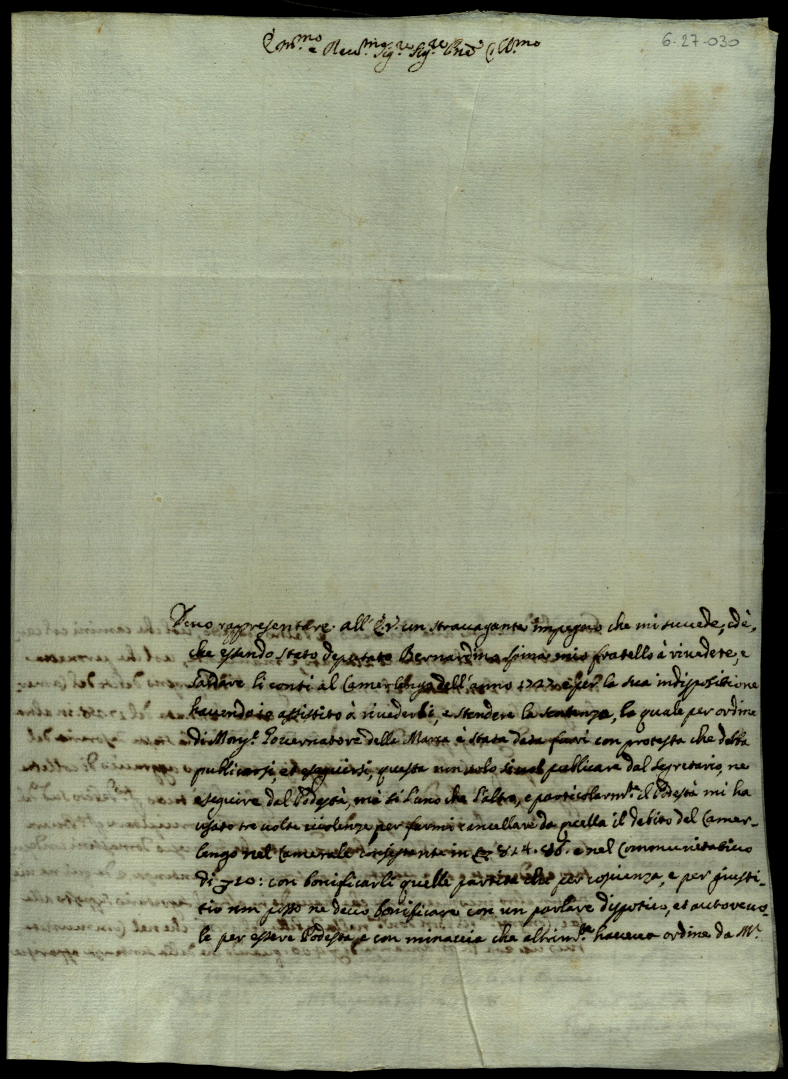 6-27-030
Em.mo e Rev.mo Sig.re Sig.re Pne Col.mo
Devo rappresentare all'Em. un stravagante impegno che mi succede, ed è,
che essendo stato deputato Bernardino Spina mio fratello à rivedere, e
saldare li conti al Camerlengo dell'anno 1727 e per la sua indisposizione
havendo io assistito à rivederli, e stendere la sentenza, la quale per ordine
di Mons.r Governatore della Marca è stata data fuori con protesta che debba
publicarsi, et eseguirsi, questa non solo si vuol publicare dal Segretario, ne
eseguire dal Podestà, mà sì l'uno che l'altro, e particolarm.te il Podestà mi ha
usato tre volte violenze per farmi cancellare da quella il debito del Camer-
lengo nel Camerale consistente in 814. 86. e nel Communitativo
di 320: con bonificarli quelle partite che per coscienza, e per giusti-
tia non posso ne devo bonificare con un parlare dispotico, et autorevo-
le per essere Podestà, e con minaccia che altrim.te haveva ordine da M.r